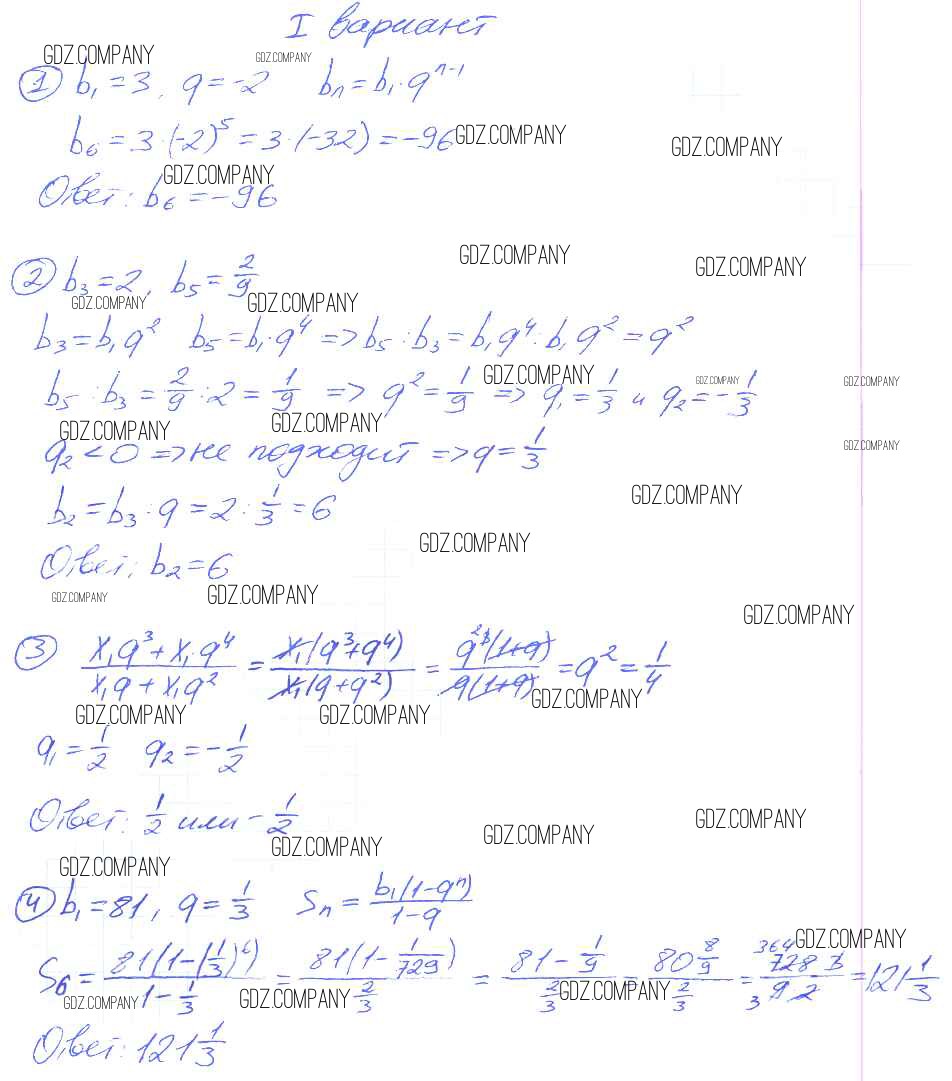 I вариант
GDZ.COMPANY GDZ.COMPANY
① b₁ = 3, q = -2 bₙ = b₁·qⁿ⁻¹
b₆ = 3·(-2)⁵ = 3·(-32) = -96 GDZ.COMPANY GDZ.COMPANY
GDZ.COMPANY
Ответ: b₆ = -96
GDZ.COMPANY GDZ.COMPANY
② b₃ = 2, b₅ = 2/9
GDZ.COMPANY GDZ.COMPANY
b₃ = b₁q² b₅ = b₁·q⁴ => b₅ : b₃ = b₁q⁴ : b₁q² = q²
GDZ.COMPANY GDZ.COMPANY GDZ.COMPANY
b₅ : b₃ = 2/9 : 2 = 1/9 => q² = 1/9 => q₁ = 1/3 и q₂ = -1/3
GDZ.COMPANY GDZ.COMPANY GDZ.COMPANY
q₂ < 0 => не подходит => q = 1/3
GDZ.COMPANY
b₂ = b₃ : q = 2 : 1/3 = 6
GDZ.COMPANY
Ответ: b₂ = 6
GDZ.COMPANY GDZ.COMPANY GDZ.COMPANY
③ (x₁q³ + x₁·q⁴)/(x₁q + x₁q²) = x₁(q³+q⁴)/x₁(q+q²) = q³²(1+q)/q(1+q) = q² = 1/4
GDZ.COMPANY GDZ.COMPANY GDZ.COMPANY
q₁ = 1/2 q₂ = -1/2
Ответ: 1/2 или -1/2
GDZ.COMPANY GDZ.COMPANY GDZ.COMPANY GDZ.COMPANY
④ b₁ = 81, q = 1/3 Sₙ = b₁(1-qⁿ)/(1-q)
GDZ.COMPANY
S₆ = 81(1-(1/3)⁶)/(1-1/3) = 81(1-1/729)/(2/3) = (81-1/9)/(2/3) = (80 8/9)/(2/3) = 364 728·3/3 9·2 = 121 1/3
GDZ.COMPANY GDZ.COMPANY GDZ.COMPANY
Ответ: 121 1/3